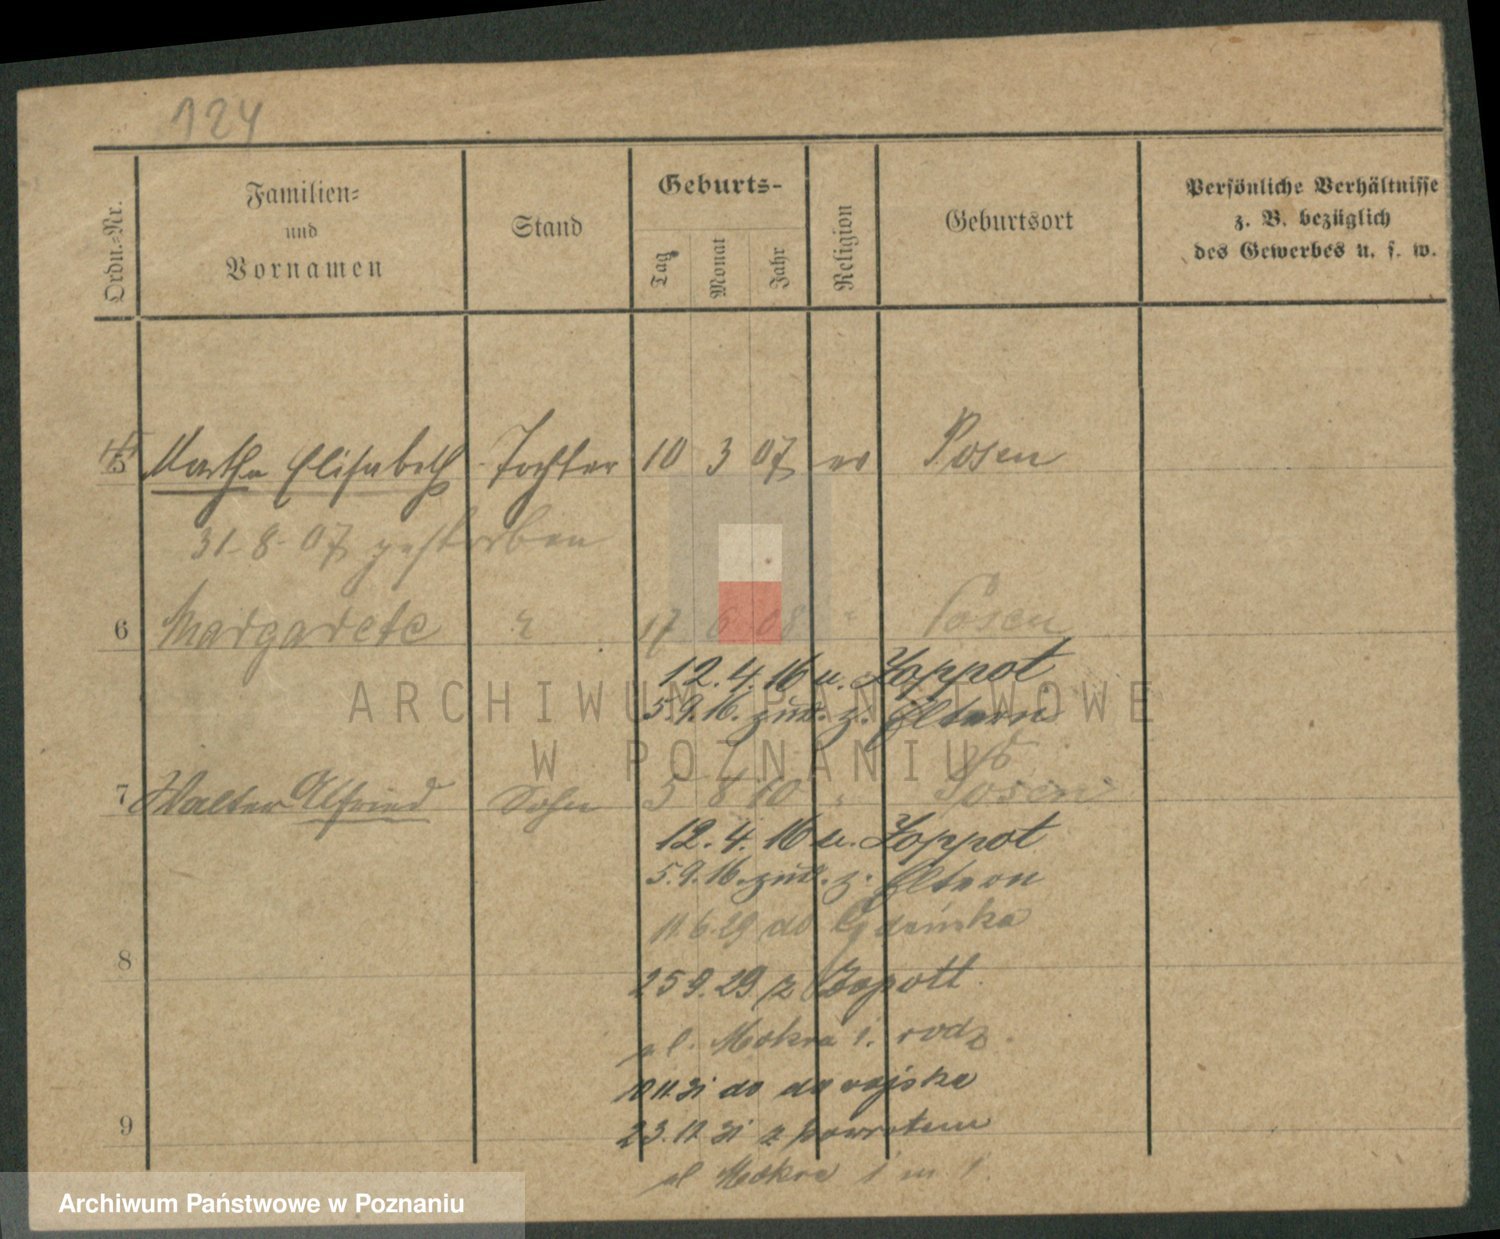 124
Ordn.-Nr.
Familien-
und
Vornamen
Stand
Geburts-
Tag
Monat
Jahr
Religion
Geburtsort
Persönliche Verhältnisse
z. B. bezüglich
des Gewerbes u. s. w.
5 Martha Elisabeth Tochter 10 3 07 ev Posen
31-8-07 gestorben
6 Margarete 17 6 08 " Posen
12.4.16 u. Zoppot
5.9.16. zur. z. Eltern
7 Walter Alfried Sohn 5 8 10 " Posen
12.4.16 u. Zoppot
5.9.16. zur. z. Eltern
11.6.29 do Gdańska
8
25 9.29 z Zopott
pl. Mokra 1. rodz.
10 11.31 do do wojska
9
23.12 31 z powrotem
pl Mokra 1 m 1
ARCHIWUM PAŃSTWOWE
W POZNANIU
Archiwum Państwowe w Poznaniu